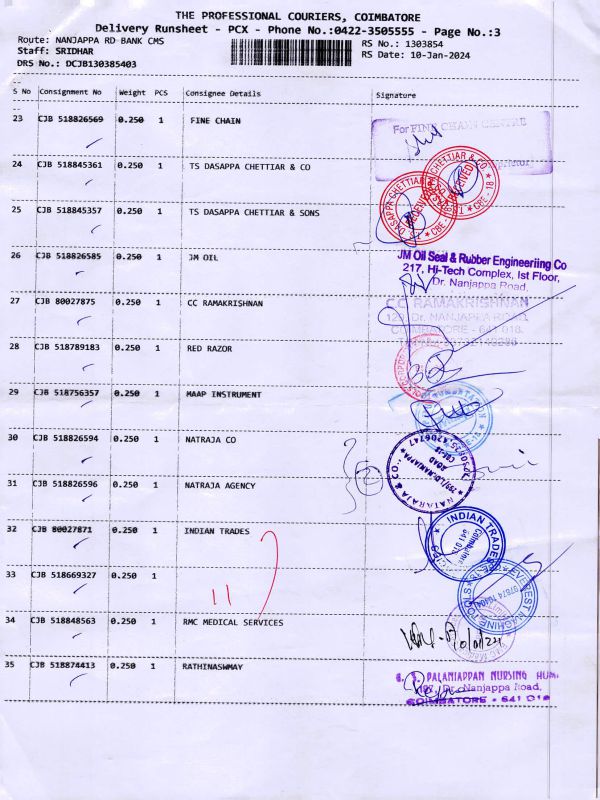 THE PROFESSIONAL COURIERS, COIMBATORE
Delivery Runsheet - PCX - Phone No.:0422-3505555 - Page No.:3
Route: NANJAPPA RD BANK CMS
RS No.: 1303854
Staff: SRIDHAR
RS Date: 10-Jan-2024
DRS No.: DCJB130385403
S No Consignment No Weight PCS Consignee Details Signature
23 CJB 518826569 0.250 1 FINE CHAIN
For FINE CHAIN CENTRE
24 CJB 518845361 0.250 1 TS DASAPPA CHETTIAR & CO
25 CJB 518845357 0.250 1 TS DASAPPA CHETTIAR & SONS
26 CJB 518826585 0.250 1 JM OIL
JM Oil Seal & Rubber Engineeriing Co
217, Hi-Tech Complex, Ist Floor,
Dr. Nanjappa Road,
27 CJB 80027875 0.250 1 CC RAMAKRISHNAN
C.C. RAMAKRISHNAN
Dr. NANJAPPA ROAD,
COIMBATORE - 641 018.
28 CJB 518789183 0.250 1 RED RAZOR
29 CJB 518756357 0.250 1 MAAP INSTRUMENT
30 CJB 518826594 0.250 1 NATRAJA CO
NATARAJA & CO.,
31 CJB 518826596 0.250 1 NATRAJA AGENCY
32 CJB 80027871 0.250 1 INDIAN TRADES
INDIAN TRADES
Coimbatore
33 CJB 518669327 0.250 1
EVEREST MACHINE TOOLS
34 CJB 518848563 0.250 1 RMC MEDICAL SERVICES
35 CJB 518874413 0.250 1 RATHINASWMAY
PALANIAPPAN NURSING HOME
Dr. Nanjappa Road,
COIMBATORE - 641 018